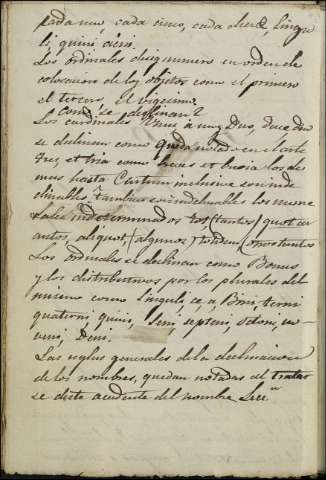 cada uno, cada cinco, cada diez Singu
li, quini, deni.
Los ordinales dicen numero en orden de
colocacion de los objetos como el primero
el tercero, el vigesimo.
Como se declinan?
Los cardinales Unus a um, Duo, duae duo
se declinan como queda notado en el arte
Tres, et tria como breves et brevia los de
mas hasta Centum inclusive son inde
clinables. Tambien son indeclinables los nume
rales indeterminados Tot, (tantos) quot cu
antos, aliquot, (algunos) totidem (otros tantos
Los ordinales se declinan como Bonus
y los distributivos por los plurales del
mismo como Singuli, ae, a, Bini, terni
quaterni quini, Seni, septeni, octoni, no
veni, Deni.
Las reglas generales de la declinacion
de los nombres, quedan notadas al tratar
se de este accidente del nombre